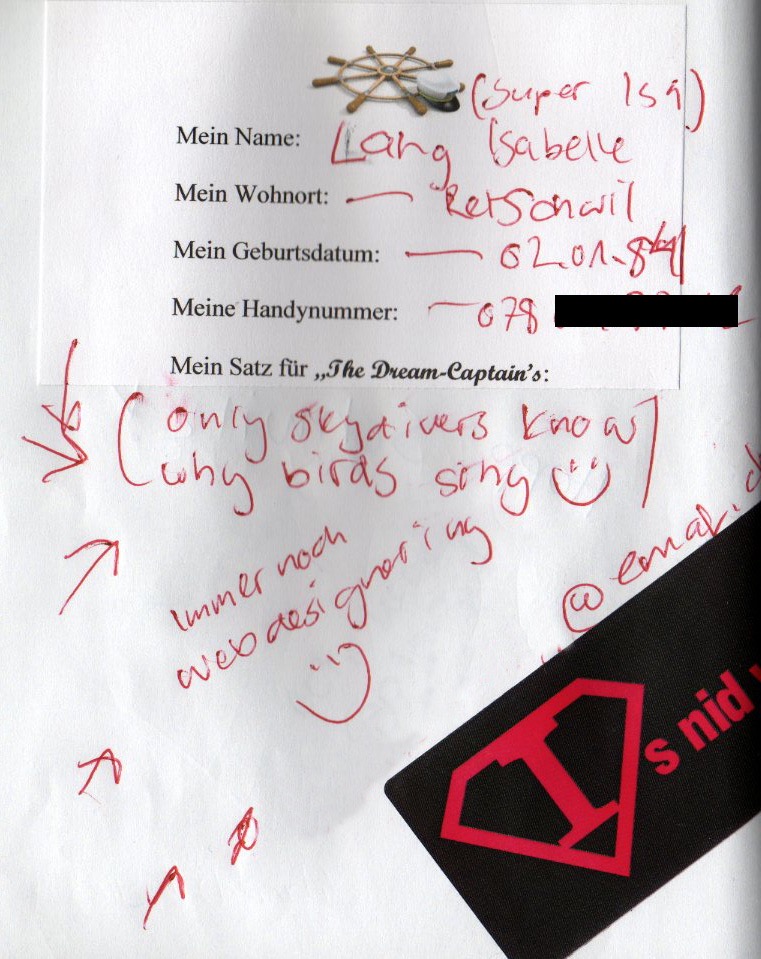 (Super Isa)
Mein Name: Lang Isabelle
Mein Wohnort: — Retschwil
Mein Geburtsdatum: — 02.01.84
Meine Handynummer: — 078
Mein Satz für „The Dream-Captain's:
(only skydivers know
why birds sing)
immer noch
webdesignering
@email.c
Is nid